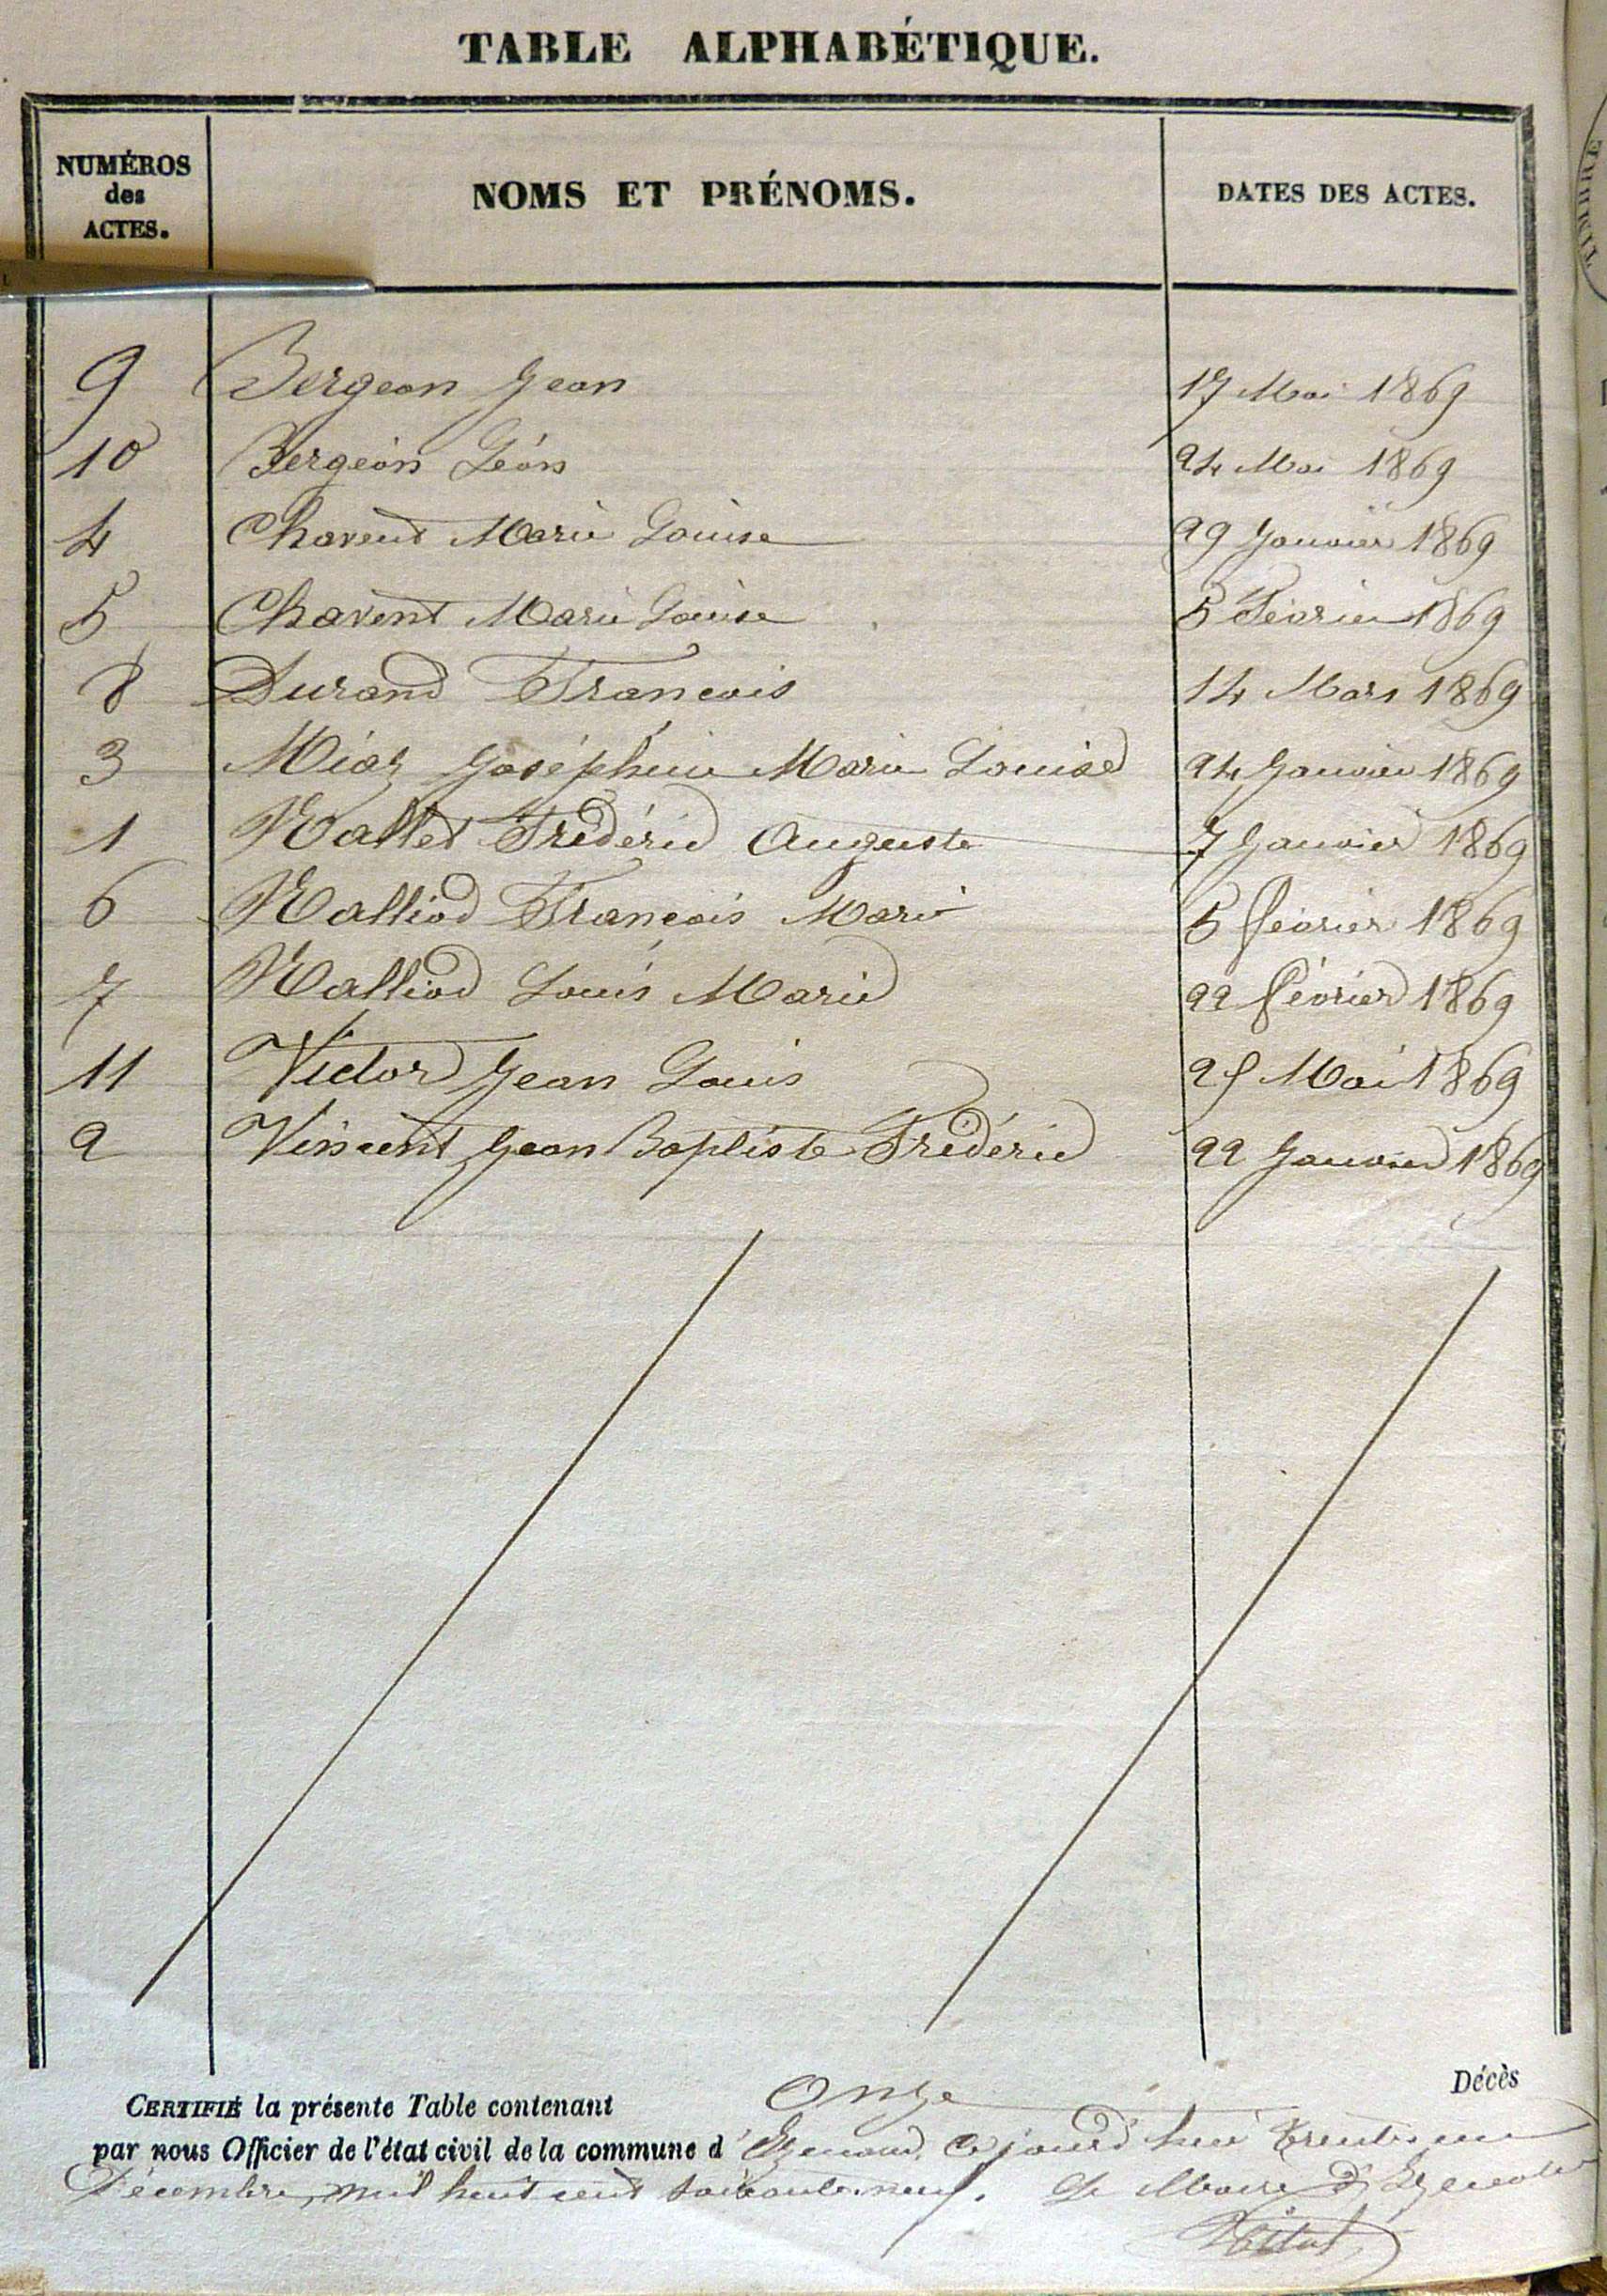 TABLE ALPHABÉTIQUE.
NUMÉROS des ACTES. NOMS ET PRÉNOMS. DATES DES ACTES.
9 Bergeon Jean 17 Mai 1869
10 Bergeon Léon 24 Mai 1869
4 Chavent Marie Louise 29 Janvier 1869
5 Chavent Marie Louise 5 Février 1869
8 Durand Francois 14 Mars 1869
3 Joséphine Marie Louise 24 Janvier 1869
1 Nallet Frédéric Auguste 7 Janvier 1869
6 Nalliod Francois Marie 5 février 1869
7 Nalliod Louis Marie 22 février 1869
11 Victor Jean Louis 25 Mai 1869
2 Vincent Jean Baptiste Frédéric 22 Janvier 1869
CERTIFIÉ la présente Table contenant Onze Décès
par nous Officier de l'état civil de la commune d' ce jourd'hui trente un
Décembre, mil huit cent soixante neuf. Le Maire d'